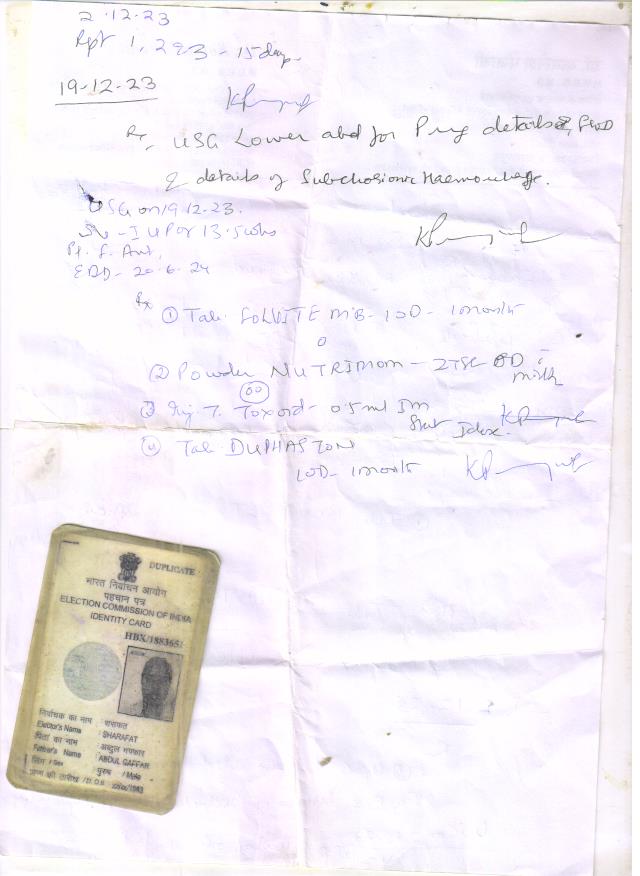 2.12.23
Rpt 1, 2 & 3 - 15 days
19-12-23
Rx USG Lower abd for Preg details
& details of Subchorionic Haemorrhage.
USG on 19.12.23.
IUP of 13.5wks
Pl. f. Ant,
EDD- 20-6-24
Rx
① Tab. MB- 1OD- 1month
② Powder NUTRIMOM - 2TSF OD c milk
③ Inj. T. Toxoid - 0.5ml IM
Stat 1dose.
④ Tab DUPHASTON
1OD- 1month
DUPLICATE
भारत निर्वाचन आयोग
पहचान पत्र
ELECTION COMMISSION OF INDIA
IDENTITY CARD
HBX/188365
निर्वाचक का नाम : शराफत
Elector's Name : SHARAFAT
पिता का नाम : अब्दुल गफ्फार
Father's Name : ABDUL GAFFAR
लिंग / Sex पुरुष / Male
जन्म की तारीख / D.O.B xx/xx/1983